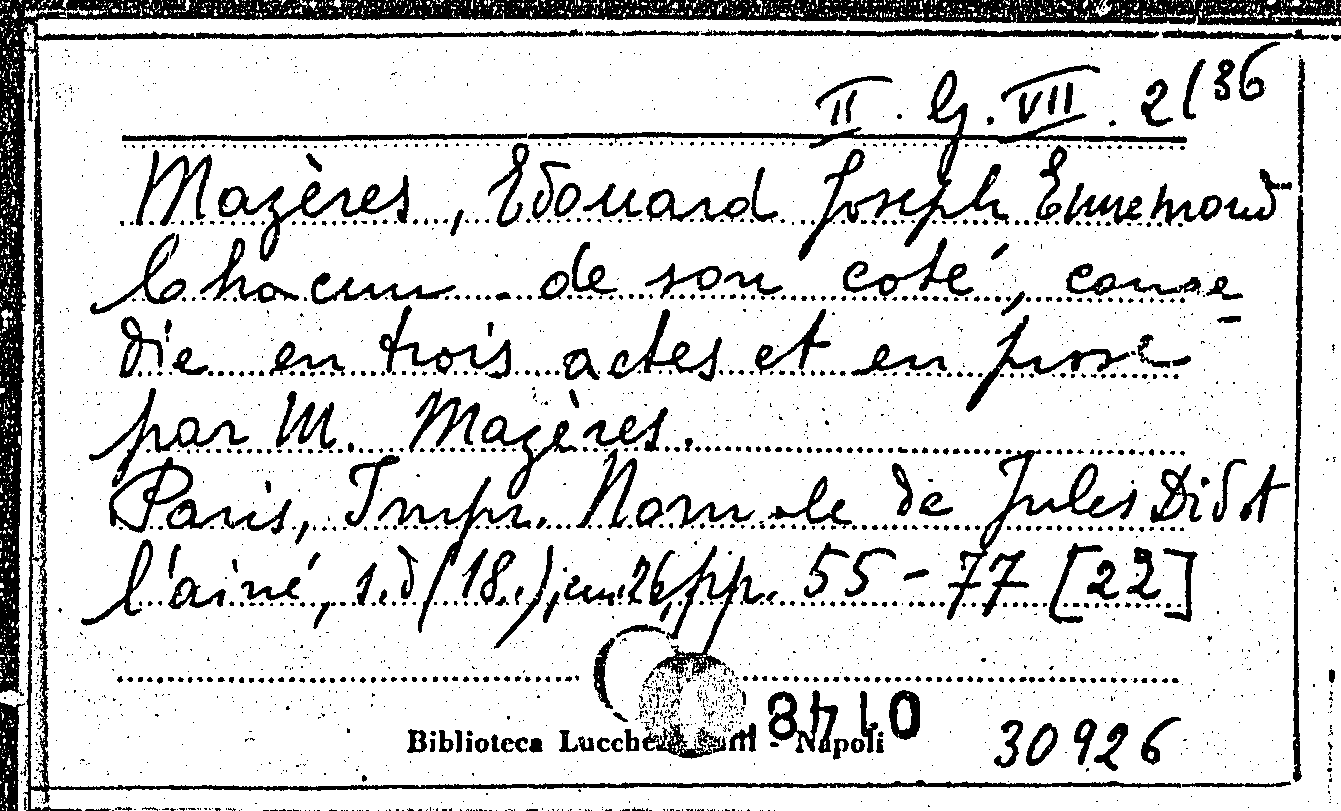 II. G. VII. 2(36
Mazères, Edouard Joseph Ennemond
Chacun de son coté, come
die en trois actes et en prose
par M. Mazères.
Paris, Impr. Norm.le de Jules Didot
l'ainé, s.d (18..), cm.26, pp. 55-77 [22]
Biblioteca Lucchesi - Napoli
30926